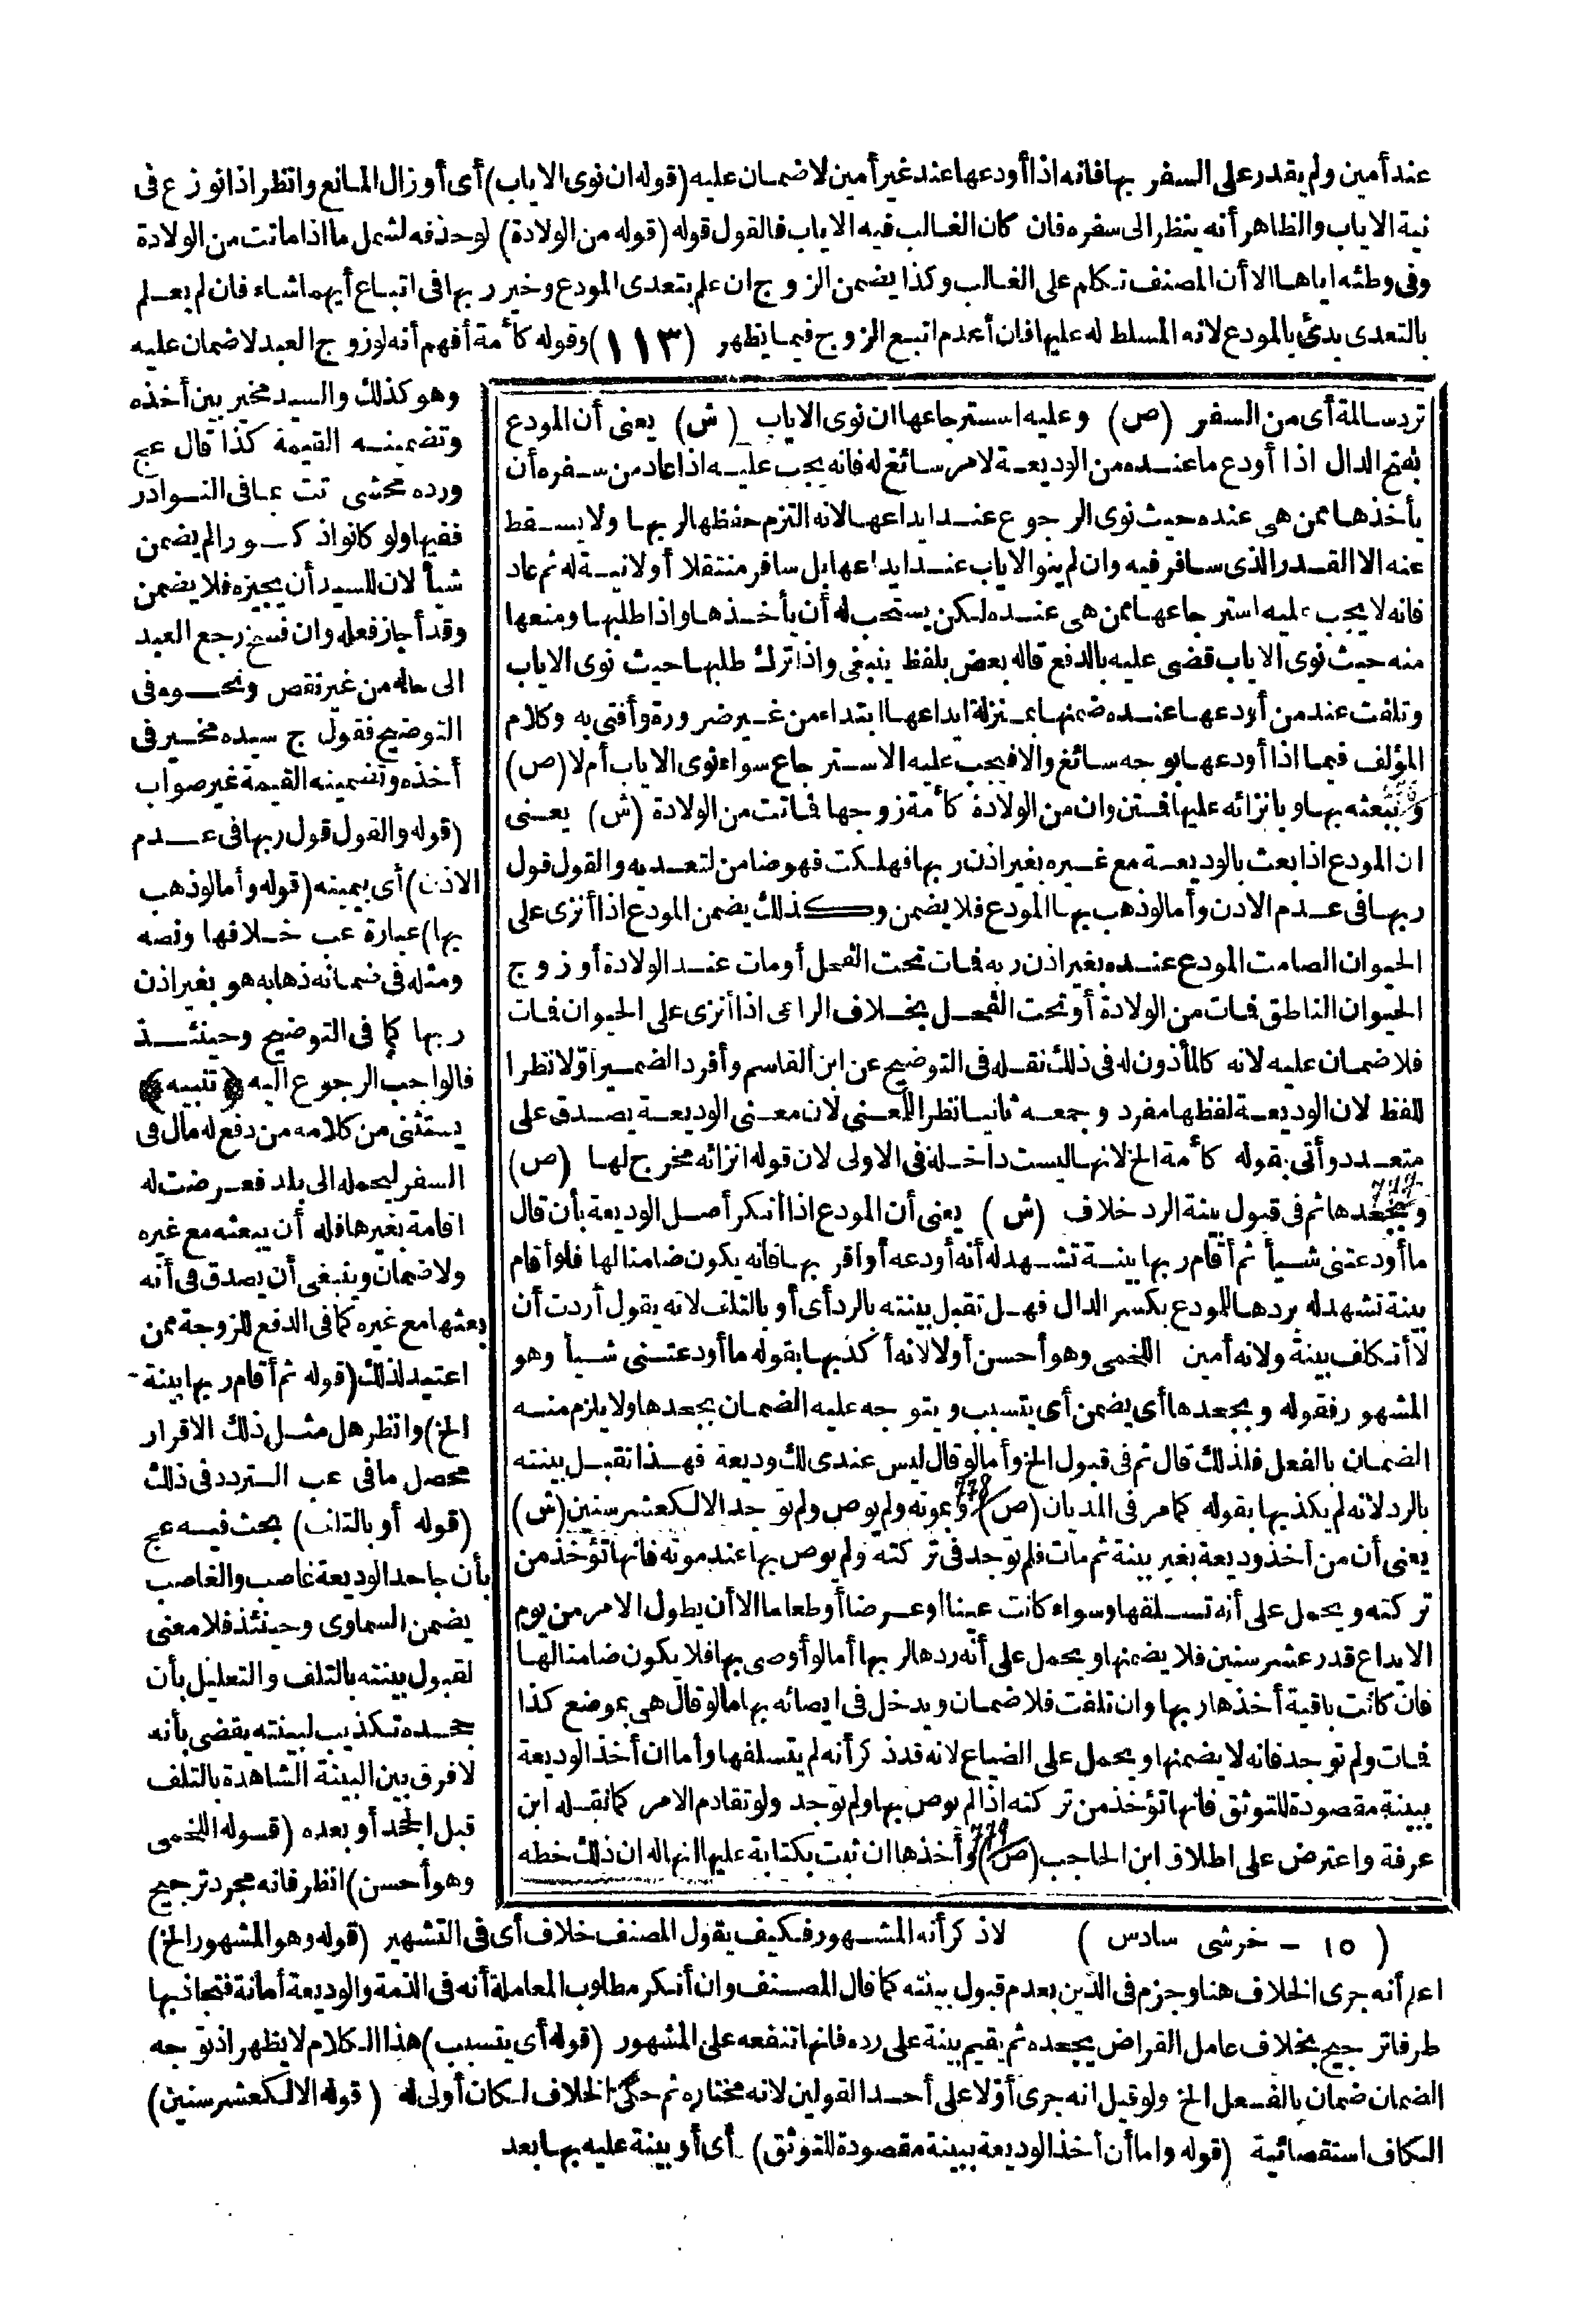 عند أمين ولم يقدر على السفر بها فانه اذا أودعها عند غير أمين لا ضمان عليه (قوله ان نوى الاياب) أى أو زال المانع وانظر اذا نوزع فى
نية الاياب والظاهر أنه ينظر الى سفره فان كان الغالب فيه الاياب فالقول قوله (قوله من الولادة) لو حذفه لشمل ما اذا ماتت من الولادة
وفى وطئه اياها الا أن المصنف تكلم على الغالب وكذا يضمن الزوج ان علم بتعدى المودع وخير ربها فى اتباع أيهما شاء فان لم يعلم
بالتعدى بدئ بالمودع لانه المسلط له عليها فان أعدم اتبع الزوج فيما يظهر (١١٣) وقوله كأمة أفهم أنه لو زوج العبد لا ضمان عليه
وهو كذلك والسيد مخير بين أخذه
وتضمينه القيمة كذا قال عج
ورده محشى تت بما فى النوادر
ففيها ولو كانوا ذكورا لم يضمن
شيأ لان للسيد أن يجيزه فلا يضمن
وقد أجاز فعله وان فسخ رجع العبد
الى حاله من غير نقص ونحوه فى
التوضيح فقول ج سيده مخير فى
أخذه وتضمينه القيمة غير صواب
(قوله والقول قول ربها فى عدم
الاذن) أى بيمينه (قوله وأما لو ذهب
بها) عبارة عب خلافها ونصه
ومثله فى ضمانه ذهابه هو بغير اذن
ربها كما فى التوضيح وحينئذ
فالواجب الرجوع اليه ﴿تنبيه﴾
يستثنى من كلامه من دفع له مال فى
السفر ليحمله الى بلد فعرضت له
اقامة بغيرها فله أن يبعثه مع غيره
ولا ضمان وينبغى أن يصدق فى أنه
بعثها مع غيره كما فى الدفع للزوجة ممن
اعتيد لذلك (قوله ثم أقام ربها بينة
الخ) وانظر هل مثل ذلك الاقرار
محصل ما فى عب التردد فى ذلك
(قوله أو بالتلف) بحث فيه عج
بأن جاحد الوديعة غاصب والغاصب
يضمن السماوى وحينئذ فلا معنى
لقبول بينته بالتلف والتعليل بأن
جحده تكذيب لبينته يقضى بأنه
لا فرق بين البينة الشاهدة بالتلف
قبل الجحد أو بعده (قوله اللخمى
وهو أحسن) انظر فانه مجرد ترجيح
ترد سالمة أى من السفر (ص) وعليه استرجاعها ان نوى الاياب (ش) يعنى أن المودع
بفتح الدال اذا أودع ما عنده من الوديعة لامر سائغ له فانه يجب عليه اذا عاد من سفره أن
يأخذها ممن هى عنده حيث نوى الرجوع عند ايداعها لانه التزم حفظها لربها ولا يسقط
عنه الا القدر الذى سافر فيه وان لم ينو الاياب عند ايداعها بل سافر منتقلا أولا نية له ثم عاد
فانه لا يجب عليه استرجاعها ممن هى عنده لكن يستحب له أن يأخذها واذا طلبها ومنعها
منه حيث نوى الاياب قضى عليه بالدفع قاله بعض بلفظ ينبغى واذا ترك طلبها حيث نوى الاياب
وتلفت عند من أودعها عنده ضمنها بمنزلة ايداعها ابتداء من غير ضرورة وأفتى به وكلام
المؤلف فيما اذا أودعها بوجه سائغ والا فيجب عليه الاسترجاع سواء نوى الاياب أم لا (ص)
وببعثه بها وبانزائه عليها فمتن وان من الولادة كأمة زوجها فماتت من الولادة (ش) يعنى
ان المودع اذا بعث بالوديعة مع غيره بغير اذن ربها فهلكت فهو ضامن لتعديه والقول قول
ربها فى عدم الاذن وأما لو ذهب بها المودع فلا يضمن وكذلك يضمن المودع اذا أنزى على
الحيوان الصامت المودع عنده بغير اذن ربه فمات تحت الفحل أو مات عند الولادة أو زوج
الحيوان الناطق فمات من الولادة أو تحت الفحل بخلاف الراعى اذا أنزى على الحيوان فمات
فلا ضمان عليه لانه كالمأذون له فى ذلك نقله فى التوضيح عن ابن القاسم وأفرد الضمير أولا نظرا
للفظ لان الوديعة لفظها مفرد وجمعه ثانيا نظرا للمعنى لان معنى الوديعة يصدق على
متعدد وأتى بقوله كأمة الخ لانها ليست داخلة فى الاولى لان قوله انزائه مخرج لها (ص)
وبجحدها ثم فى قبول بينة الرد خلاف (ش) يعنى أن المودع اذا أنكر أصل الوديعة بأن قال
ما أودعتنى شيأ ثم أقام ربها بينة تشهد له أنه أودعه أو أقر بها فانه يكون ضامنا لها فلو أقام
بينة تشهد له بردها للمودع بكسر الدال فهل تقبل بينته بالرد أى أو بالتلف لانه يقول أردت أن
لا أتكلف بينة ولانه أمين اللخمى وهو أحسن أولا لانه أكذبها بقوله ما أودعتنى شيأ وهو
المشهور فقوله وبجحدها أى يضمن أى يتسبب ويتوجه عليه الضمان بجحدها ولا يلزم منه
الضمان بالفعل فلذلك قال ثم فى قبول الخ وأما لو قال ليس عندى لك وديعة فهذا تقبل بينته
بالرد لانه لم يكذبها بقوله كما مر فى المديان (ص) وبموته ولم يوص ولم توجد الا لكعشر سنين (ش)
يعنى أن من أخذ وديعة بغير بينة ثم مات فلم توجد فى تركته ولم يوص بها عند موته فانها تؤخذ من
تركته ويحمل على أنه تسلفها وسواء كانت عينا أو عرضا أو طعاما الا أن يطول الامر من يوم
الايداع قدر عشر سنين فلا يضمنها ويحمل على أنه ردها لربها أما لو أوصى بها فلا يكون ضامنا لها
فان كانت باقية أخذها ربها وان تلفت فلا ضمان ويدخل فى ايصائه بها ما لو قال هى بموضع كذا
فمات ولم توجد فانه لا يضمنها ويحمل على الضياع لانه قد ذكر أنه لم يتسلفها وأما ان أخذ الوديعة
ببينة مقصودة للتوثق فانها تؤخذ من تركته اذا لم يوص بها ولم توجد ولو تقادم الامر كما نقله ابن
عرفة واعترض على اطلاق ابن الحاجب (ص) وأخذها ان ثبت بكتابة عليها انها له ان ذلك خطه
(١٥ - خرشى سادس) لا ذكر أنه المشهور فكيف يقول المصنف خلاف أى فى التشهير (قوله وهو المشهور الخ)
اعلم أنه جرى الخلاف هنا وجزم فى الدين بعدم قبول بينته كما قال المصنف وان أنكر مطلوب المعاملة أنه فى الذمة والوديعة أمانة فتجاذبها
طرفا ترجيح بخلاف عامل القراض يجحده ثم يقيم بينة على رده فانها تنفعه على المشهور (قوله أى يتسبب) هذا الكلام لا يظهر اذ توجه
الضمان ضمان بالفعل الخ ولو قيل انه جرى أولا على أحد القولين لانه مختاره ثم حكى الخلاف لكان أولى له (قوله الا لكعشر سنين)
الكاف استقصائية (قوله واما أن أخذ الوديعة ببينة مقصودة للتوثق) أى أو بينة عليه بها بعد